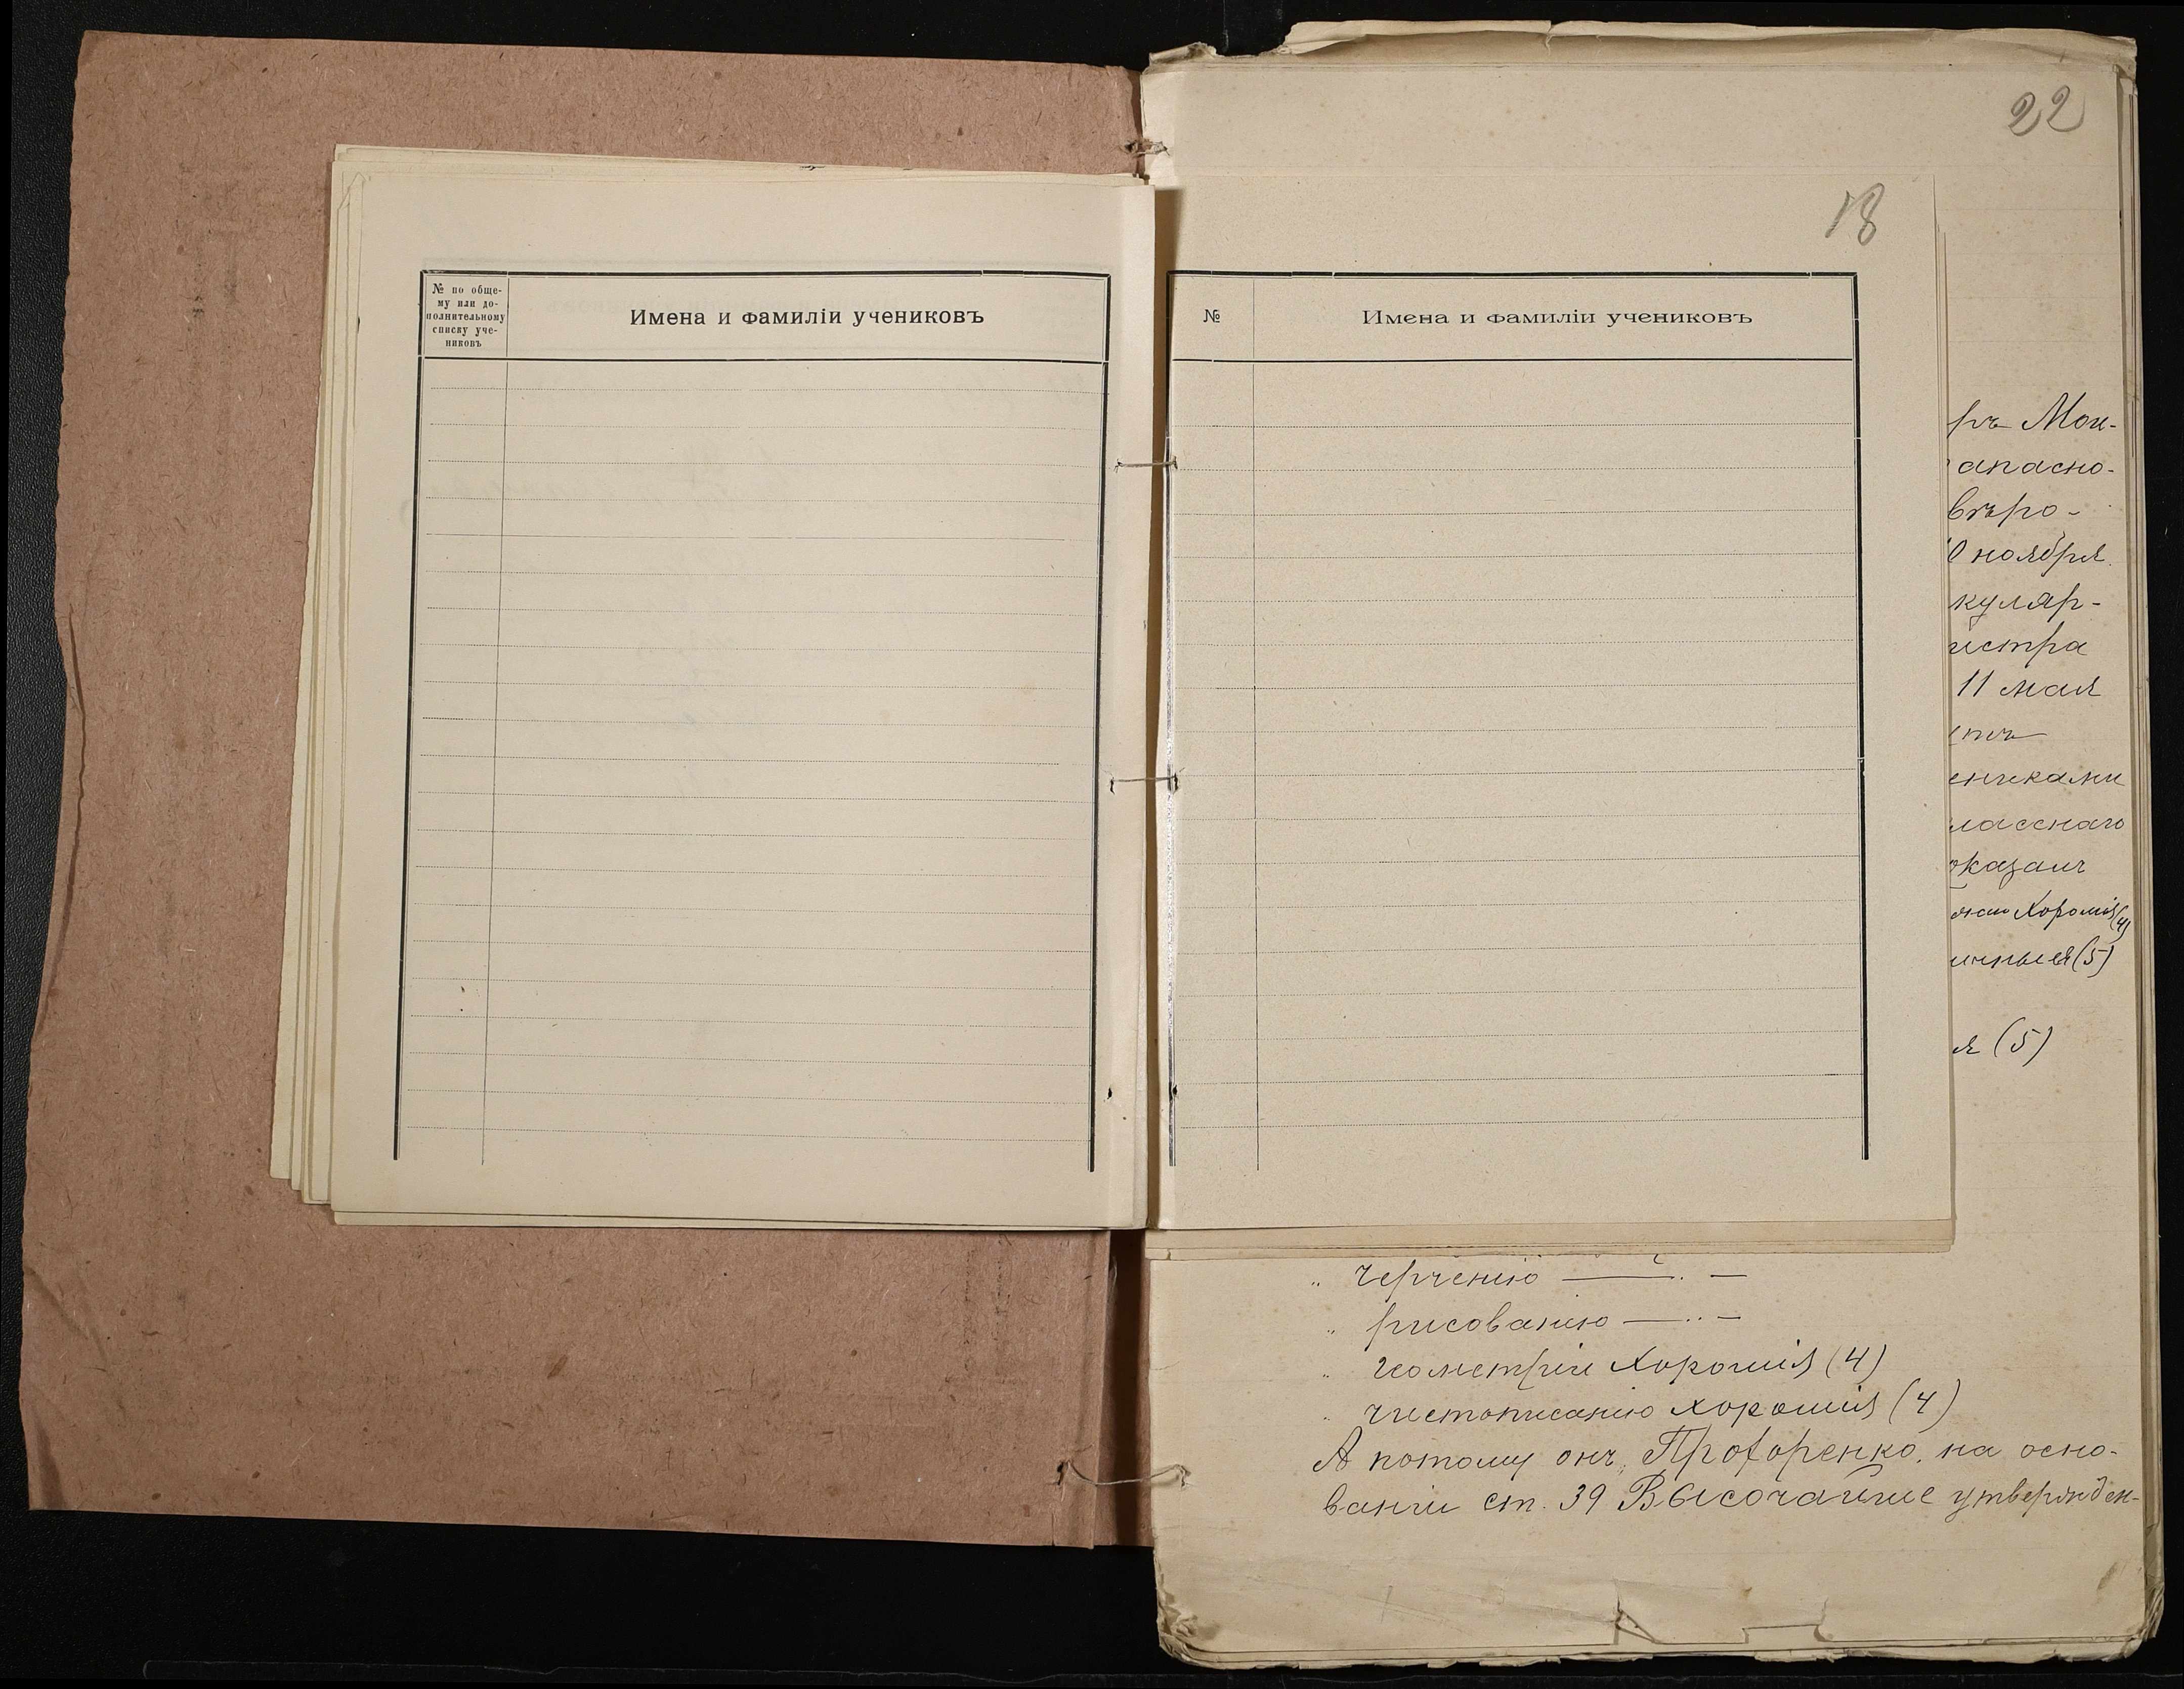 22
18
№ по обще-
му или до-
полнительному
списку уче-
никовъ
Имена и фамиліи учениковъ
№
Имена и фамиліи учениковъ
ръ Мои-
апасно-
вѣро-
0 ноября
куляр-
истра
11 мая
ѣтъ
ениками
лосснаго
оказалъ
Хорошія (4)
ичныя (5)
я (5)
„ черченію — „ —
„ рисованію — „ —
„ геометріи Хорошія (4)
„ чистописанію хорошія (4)
А потому онъ, Прохоренко, на осно-
ваніи ст. 39 Высочайше утвержден-